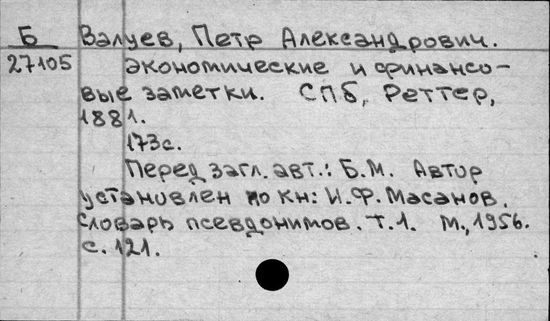 Б Валуев, Петр Александрович.
27105 экономические и финансо-
вые заметки. СПб, Реттер,
1881.
173с.
Перед загл. авт.: Б.М. Автор
установлен по кн: И.Ф. Масанов.
Словарь псевдонимов. Т.1. М., 1956.
с. 121.